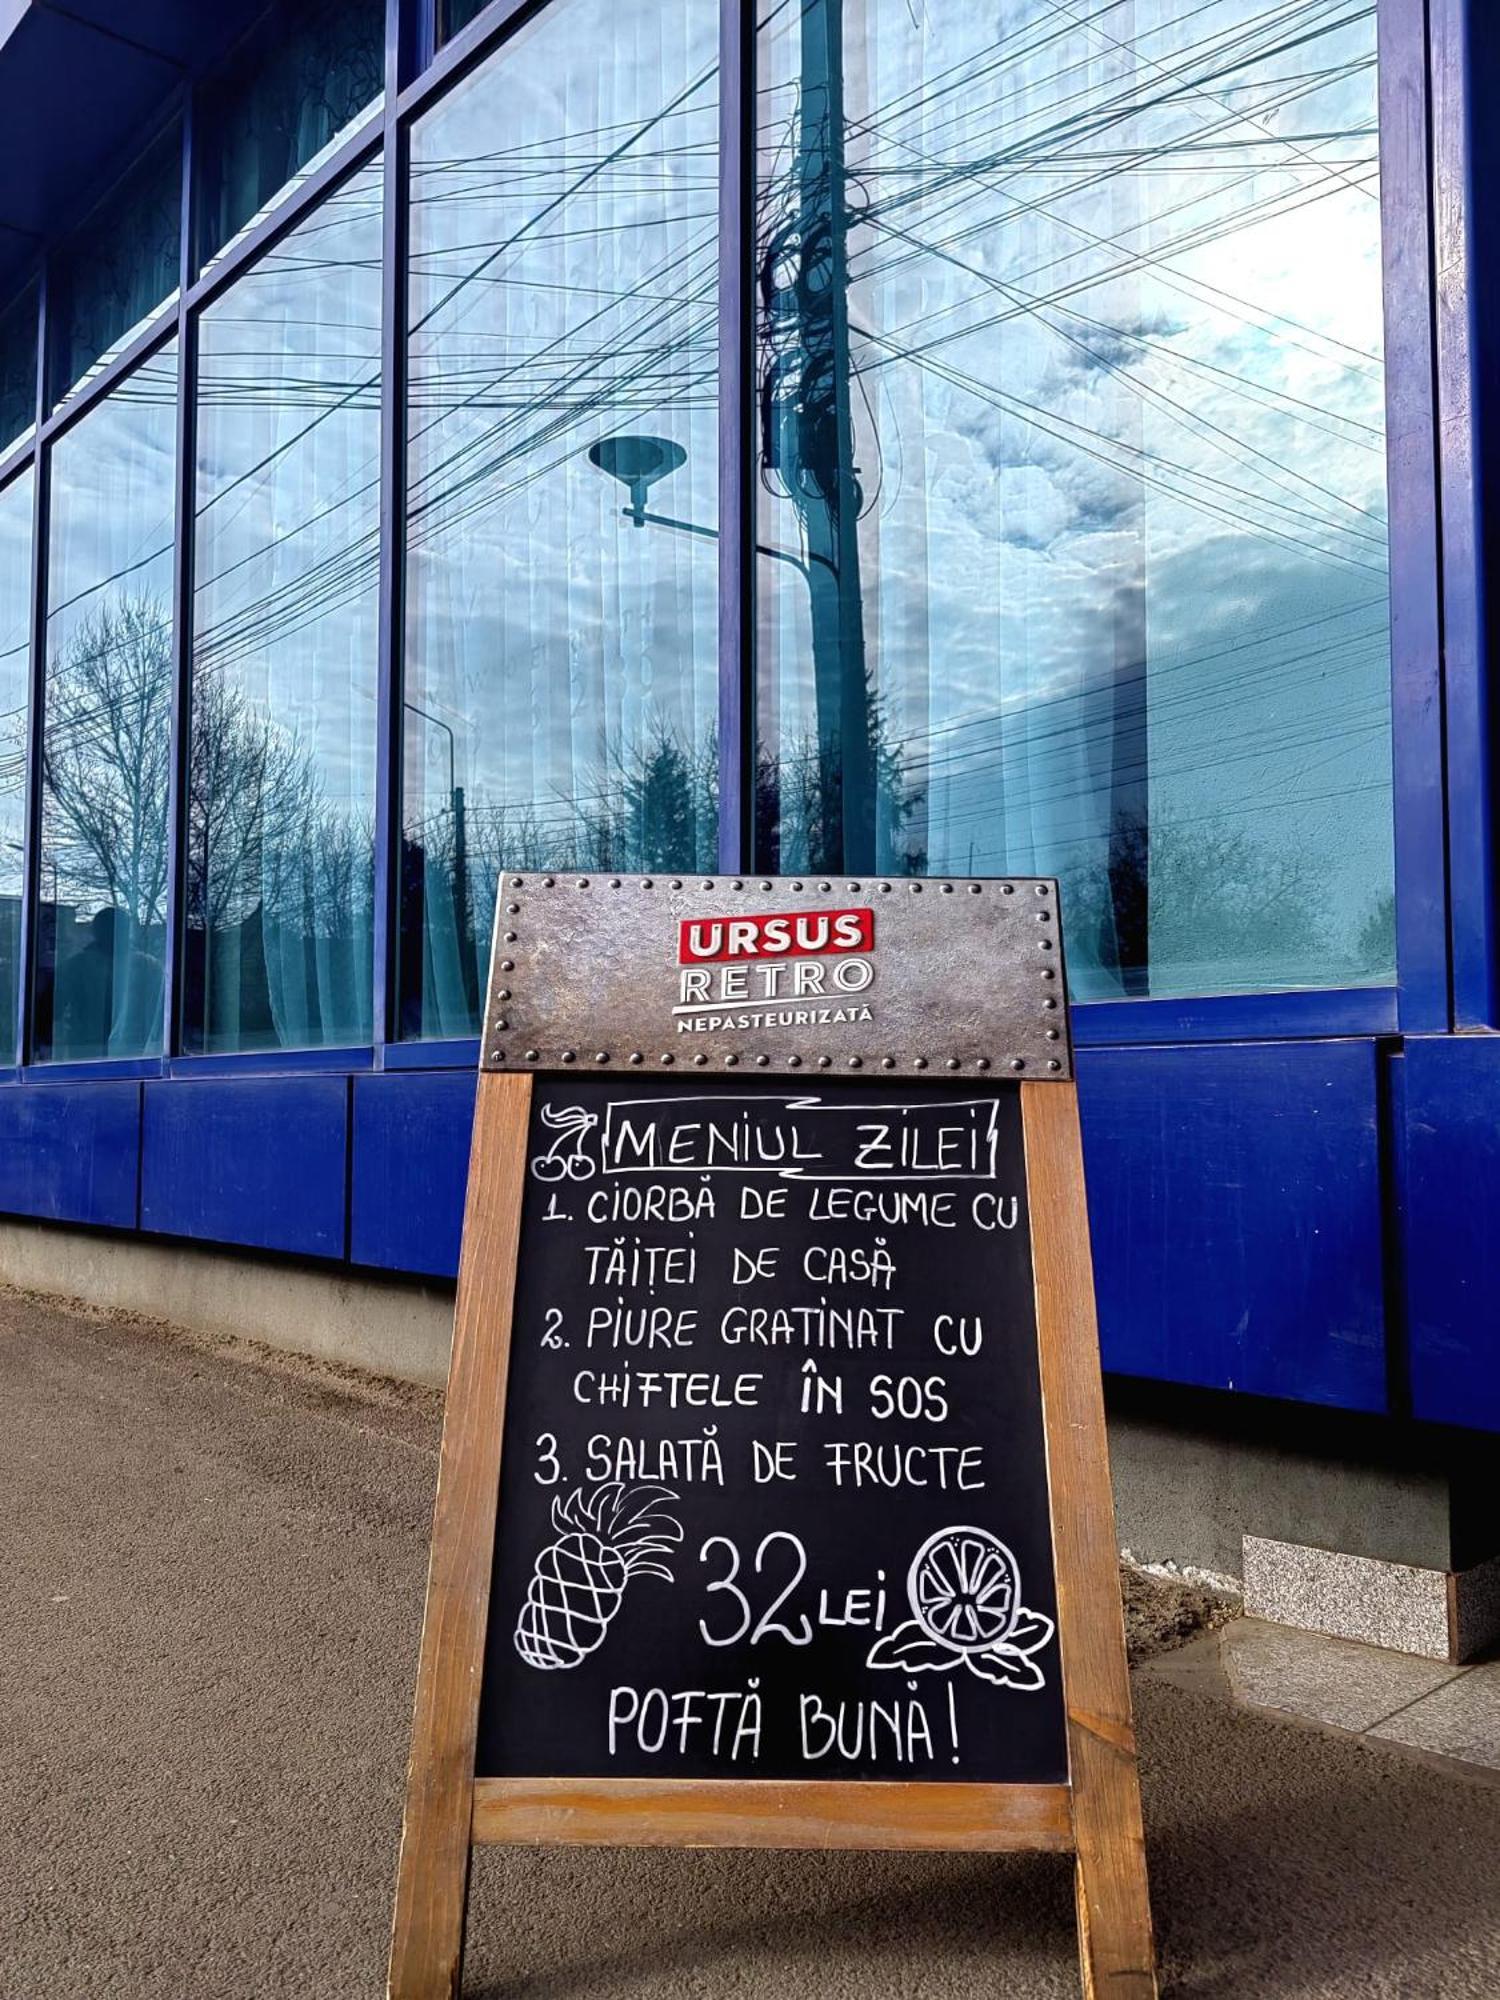 URSUS
RETRO
NEPASTEURIZATĂ
MENIUL ZILEI
1. CIORBĂ DE LEGUME CU
TĂIȚEI DE CASĂ
2. PIURE GRATINAT CU
CHIFTELE ÎN SOS
3. SALATĂ DE FRUCTE
32 LEI
POFTĂ BUNĂ!